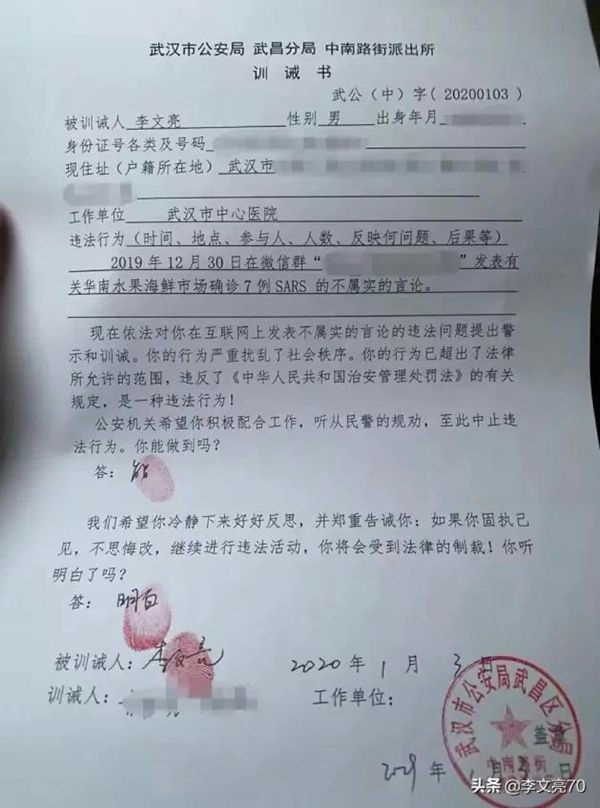 武汉市公安局 武昌分局 中南路街派出所
训 诫 书
武公（中）字（20200103）
被训诫人 李文亮 性别 男 出身年月
身份证号各类及号码
现住址（户籍所在地） 武汉市
工作单位 武汉市中心医院
违法行为（时间、地点、参与人、人数、反映何问题、后果等）
2019年12月30日在微信群“ ”发表有
关华南水果海鲜市场确诊7例SARS的不属实的言论。
现在依法对你在互联网上发表不属实的言论的违法问题提出警
示和训诫。你的行为严重扰乱了社会秩序。你的行为已超出了法律
所允许的范围，违反了《中华人民共和国治安管理处罚法》的有关
规定，是一种违法行为！
公安机关希望你积极配合工作，听从民警的规劝，至此中止违
法行为。你能做到吗？
答：能
我们希望你冷静下来好好反思，并郑重告诫你：如果你固执己
见，不思悔改，继续进行违法活动，你将会受到法律的制裁！你听
明白了吗？
答：明白
被训诫人：李文亮 2020年1月3日
训诫人： 工作单位：
武汉市公安局武昌区分局
中南路街
年 月 日
头条 @李文亮70